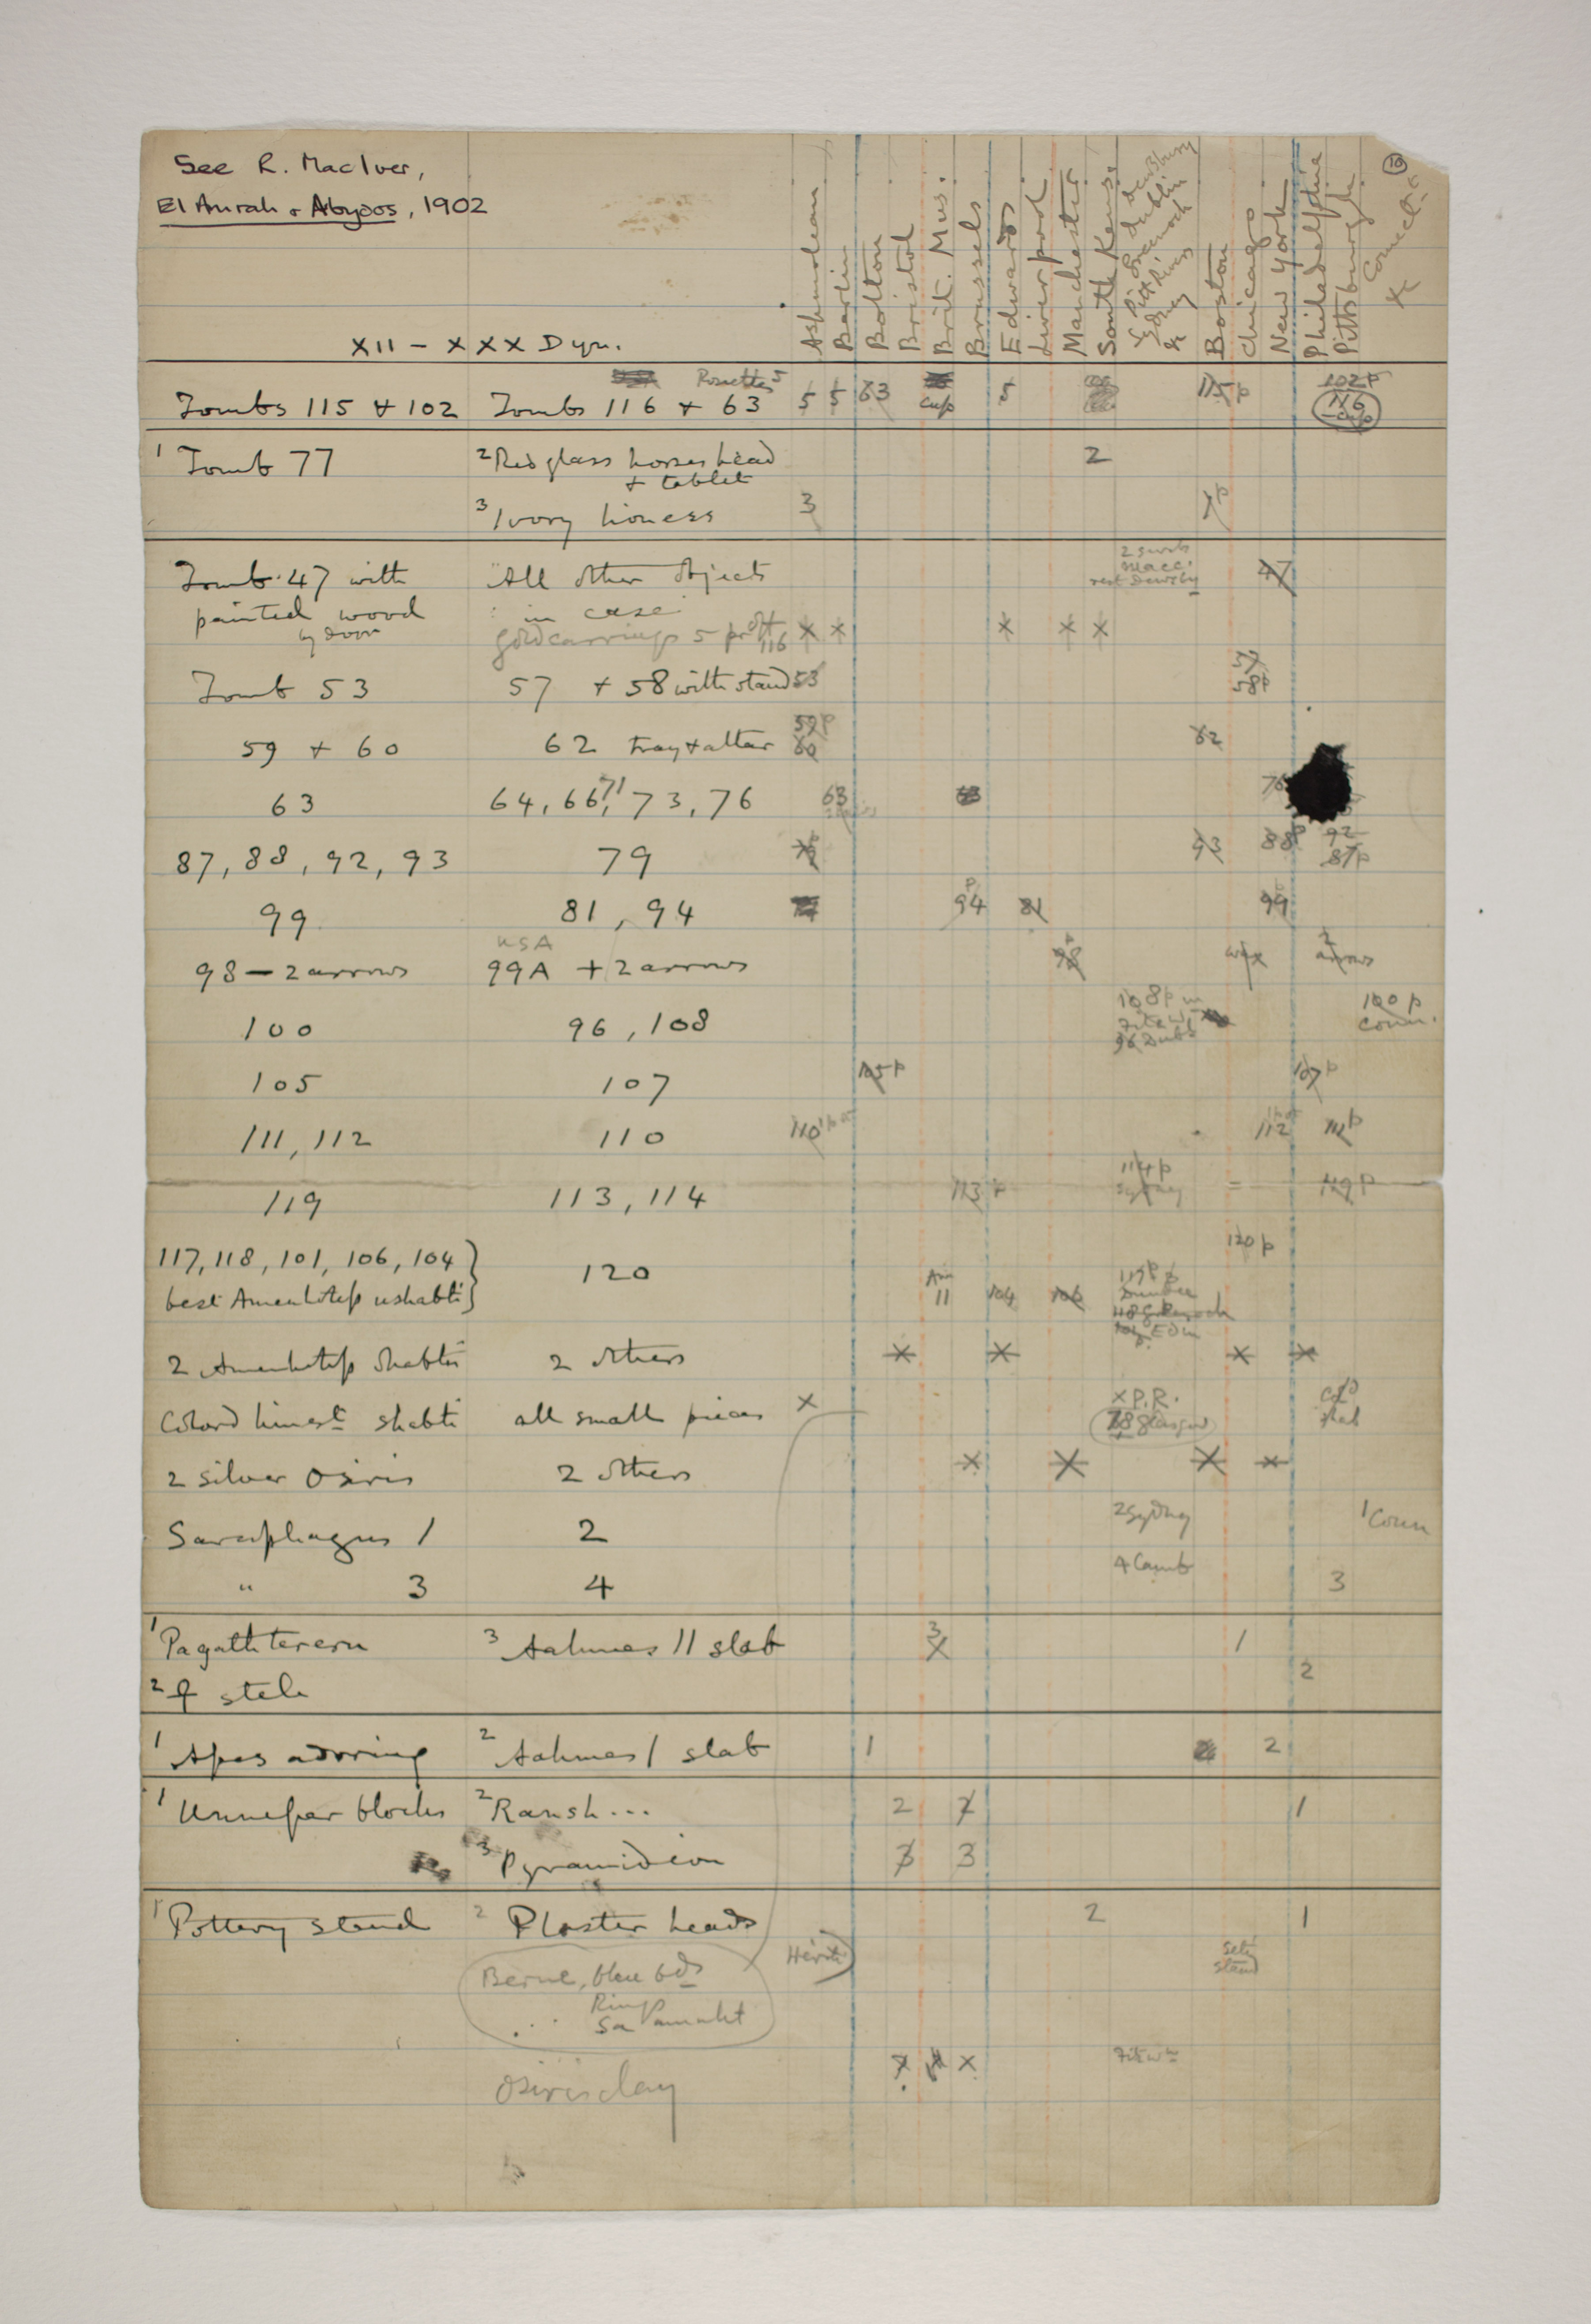 See R. MacIver,
El Amrah & Abydos, 1902
XII – XXX Dyn.
Ashmolean
Berlin
Bolton
Bristol
Brit. Mus.
Brussels
Edwards
Liverpool
Manchester
South Kens.
Dewsbury
Dublin
Greenock
Pitt Rivers
Sydney
&
Boston
Chicago
New York
Philadelphia
Pittsburgh
Connect
10
Rosettes 5
Tombs 115 & 102 Tombs 116 + 63 5 5 63 cup 5 115 p 102 p
116 cup
1 Tomb 77 2 Red glass horses head 2
+ tablet
3 Ivory lioness 3 1 p
Tomb 47 with All other objects 47
painted wood in case
by door gold earrings 5 pr of 116 x x x x x
Tomb 53 57 + 58 with stand 53 57
58 p
59 + 60 62 tray + altar 59 p 60 62
63 64, 66, 71, 73, 76 63 63 76
87, 88, 92, 93 79 93 88 p 92
87 p
99 81, 94 94 p 81 99
USA
98 – 2 arrows 99A + 2 arrows 98 2 arrows
100 96, 108 108 p 100 p
96 Dubl Conn.
105 107 105 p 107 p
111, 112 110 110 112 111 p
119 113, 114 113 p 114 p Sydney = 119 p
120 p
117, 118, 101, 106, 104 } 120 11 104 106 117 p
best Amenhotep ushabti } Dundee
118 Greenock
101 Edin
2 Amenhotep shabtis 2 others x x x x
Colord limest shabti all small pieces x x P.R. Cold
78 Glasgow shab
2 silver Osiris 2 others x x x x
Sarcophagus 1 2 2 Sydney 1 Conn
" 3 4 4 Camb 3
1 Pagathterern 3 Aahmes II slab 3 x 1
2 stele 2
1 Apes adoring 2 Aahmes I slab 1 2
1 Unnefer blocks 2 Ransh... 2 2 1
3 Pyramidion 3 3
1 Pottery stand 2 Plaster heads 2 1
Berne, blue bds Seti
Ring stand
Sa amulet
Osiris clay x x x Fitzwm